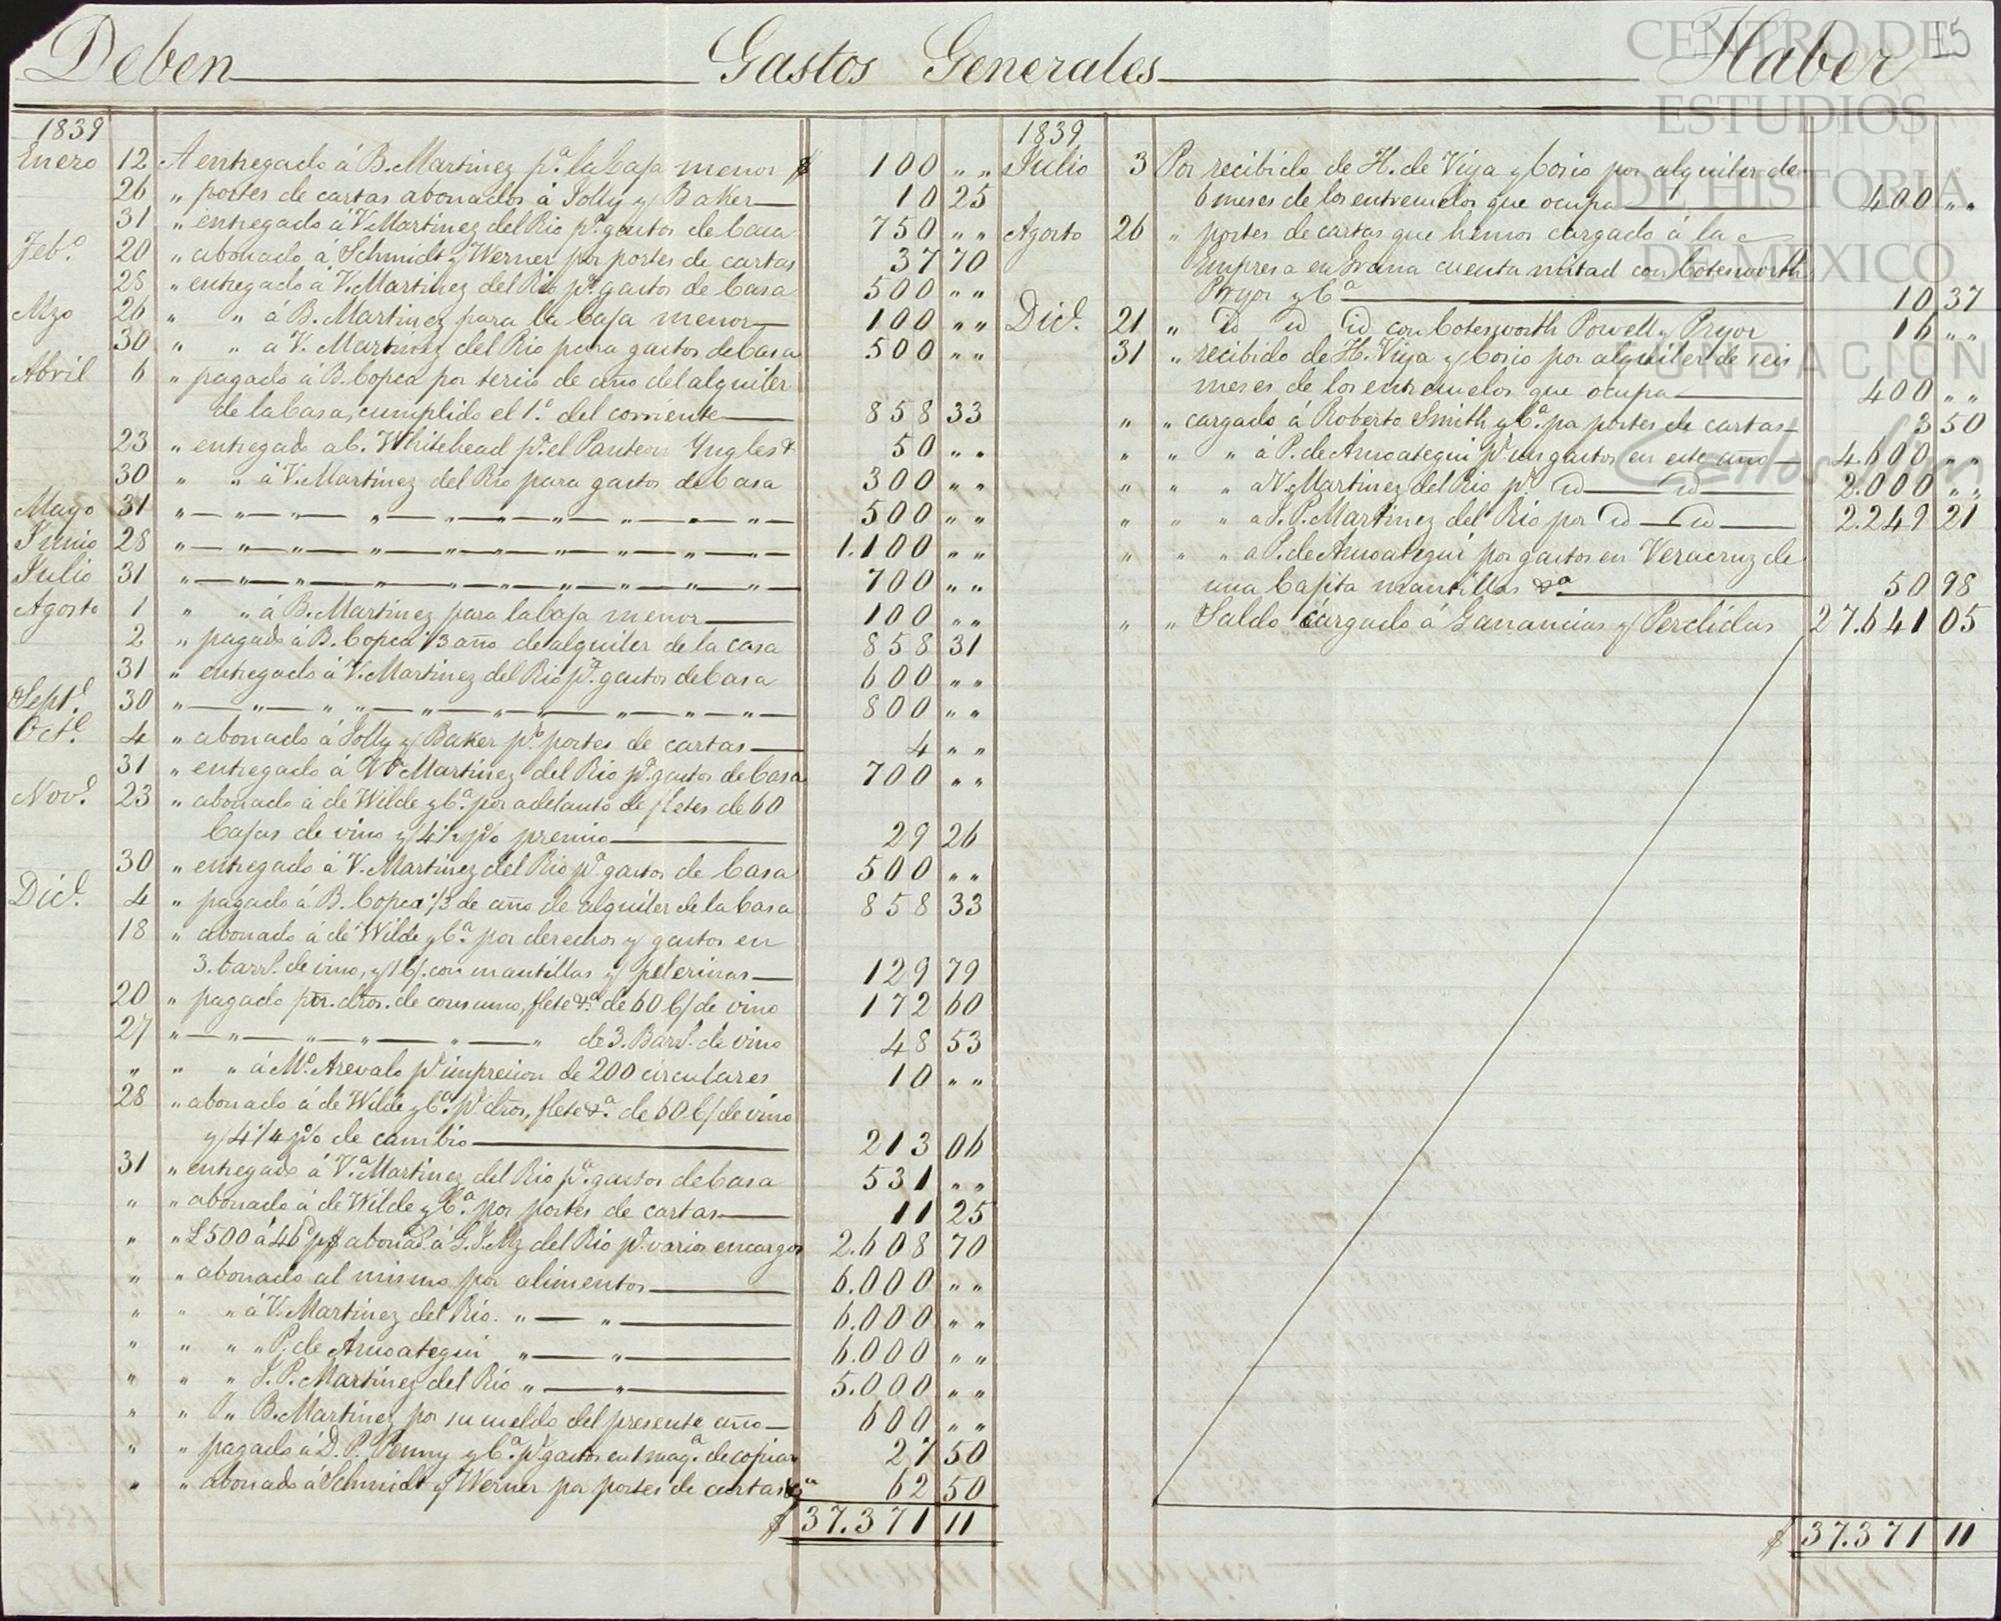 Deben Gastos Generales Haber 15
1839
Enero 12 A entregado á B. Martinez pa. la Caja menor $ 100 „ „
26 „ portes de cartas abonados á Jolly y Baker 10 25
31 „ entregado á V. Martinez del Rio pa. gastos de Casa 750 „ „
Febo. 20 „ abonado á Schmidt y Werner por portes de cartas 37 70
28 „ entregado á V. Martinez del Rio pa. gastos de Casa 500 „ „
Mzo 26 „ „ á B. Martinez para la Caja menor 100 „ „
30 „ „ a V. Martinez del Rio para gastos de Casa 500 „ „
Abril 6 „ pagado á B. Copca por tercio de año del alquiler
de la Casa, cumplido el 1o. del corriente 858 33
23 „ entregado a C. Whitehead pa. el Panteon Yngles 50 „ „
30 „ „ á V. Martinez del Rio para gastos de Casa 300 „ „
Mayo 31 „ „ „ „ „ „ „ „ „ 500 „ „
Junio 28 „ „ „ „ „ „ „ „ „ 1.100 „ „
Julio 31 „ „ „ „ „ „ „ „ „ 700 „ „
Agosto 1 „ „ á B. Martinez para la Caja menor 100 „ „
2 „ pagado á B. Copca 1/3 año de alquiler de la casa 858 31
31 „ entregado á V. Martinez del Rio pa. gastos de Casa 600 „ „
Septe. 30 „ „ „ „ „ „ „ „ „ „ 800 „ „
Octe. 4 „ abonado á Jolly y Baker pr. portes de cartas 4 „ „
31 „ entregado á Va Martinez del Rio pa. gastos de Casa 700 „ „
Nove. 23 „ abonado á de Wilde y Ca. por adelanto de fletes de 60
Cajas de vino y 4 1/2 p% premio 29 26
30 „ entregado á V. Martinez del Rio pa. gastos de Casa 500 „ „
Dice. 4 „ pagado á B. Copca 1/3 de año de alquiler de la Casa 858 33
18 „ abonado á de Wilde y Ca. por derechos y gastos en
3. barrs. de vino, y 1 C/. con mantillas y pelerinas 129 79
20 „ pagado por. dros. de consumo, flete &a de 60 C/ de vino 172 60
27 „ „ „ „ „ „ de 3. Barrs. de vino 48 53
„ „ „ á Mo. Arevalo pr. impresion de 200 circulares 10 „ „
28 „ abonado á de Wilde y Ca. pr. dros, flete &a. de 60 C/ de vino
y 4 1/4 p% de cambio 213 06
31 „ entregado á Va. Martinez del Rio pa. gastos de Casa 531 „ „
„ „ abonado á de Wilde y Ca. por portes de cartas 11 25
„ „ £500 á 46d p$ abonads. á G. J. Mz del Rio pr. varios encargos 2.608 70
„ „ abonado al mismo por alimentos 6.000 „ „
„ „ „ á V. Martinez del Rio. „ „ 6.000 „ „
„ „ „ „ P. de Ansoategui „ „ 6.000 „ „
„ „ „ J. P. Martinez del Rio „ „ 5.000 „ „
„ „ „ B. Martinez por su sueldo del presente año 600 „ „
„ „ pagado á D. P. Penny y Ca. pr. gastos en 1 maqa. de copiar 27 50
„ „ abonado á Schmidt y Werner por portes de cartas &a 62 50
$ 37.371 11
1839
Julio 3 Por recibido de H. de Viya y Cosio por alquiler de
6 meses de los entresuelos que ocupa 400 „ „
Agosto 26 „ portes de cartas que hemos cargado á la
Empresa en Grana cuenta mitad con Cotesworth
Pryor y Ca 10 37
Dice. 21 „ id id id con Cotesworth Powell y Pryor 16 „ „
31 „ recibido de H. Viya y Cosio por alquiler de seis
meses de los entresuelos que ocupa 400 „ „
„ „ cargado á Roberto Smith y Ca. pa portes de cartas 3 50
„ „ „ á P. de Ansoategui pr. sus gastos en este año 4.600 „ „
„ „ „ a V. Martinez del Rio pr. id id 2.000 „ „
„ „ „ a J. P. Martinez del Rio por id id 2.249 21
„ „ „ a P. de Ansoategui por gastos en Veracruz de
una Cajita mantillas &a 50 98
„ „ Saldo cargado á Ganancias y Perdidas 27.641 05
$ 37.371 11
CENTRO DE
ESTUDIOS
DE HISTORIA
DE MÉXICO
FUNDACIÓN
Carlos Slim